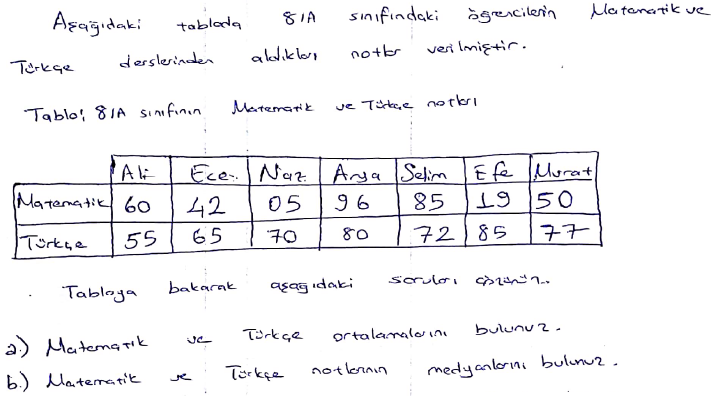 Aşağıdaki tabloda 8/A sınıfındaki öğrencilerin Matematik ve
Türkçe derslerinden aldıkları notlar verilmiştir.
Tablo: 8/A sınıfının Matematik ve Türkçe notları
Ali Ece Naz Arya Selim Efe Murat
Matematik 60 42 05 96 85 19 50
Türkçe 55 65 70 80 72 85 77
Tabloya bakarak aşağıdaki soruları çözünüz.
a.) Matematik ve Türkçe ortalamalarını bulunuz.
b.) Matematik ve Türkçe notlarının medyanlarını bulunuz.